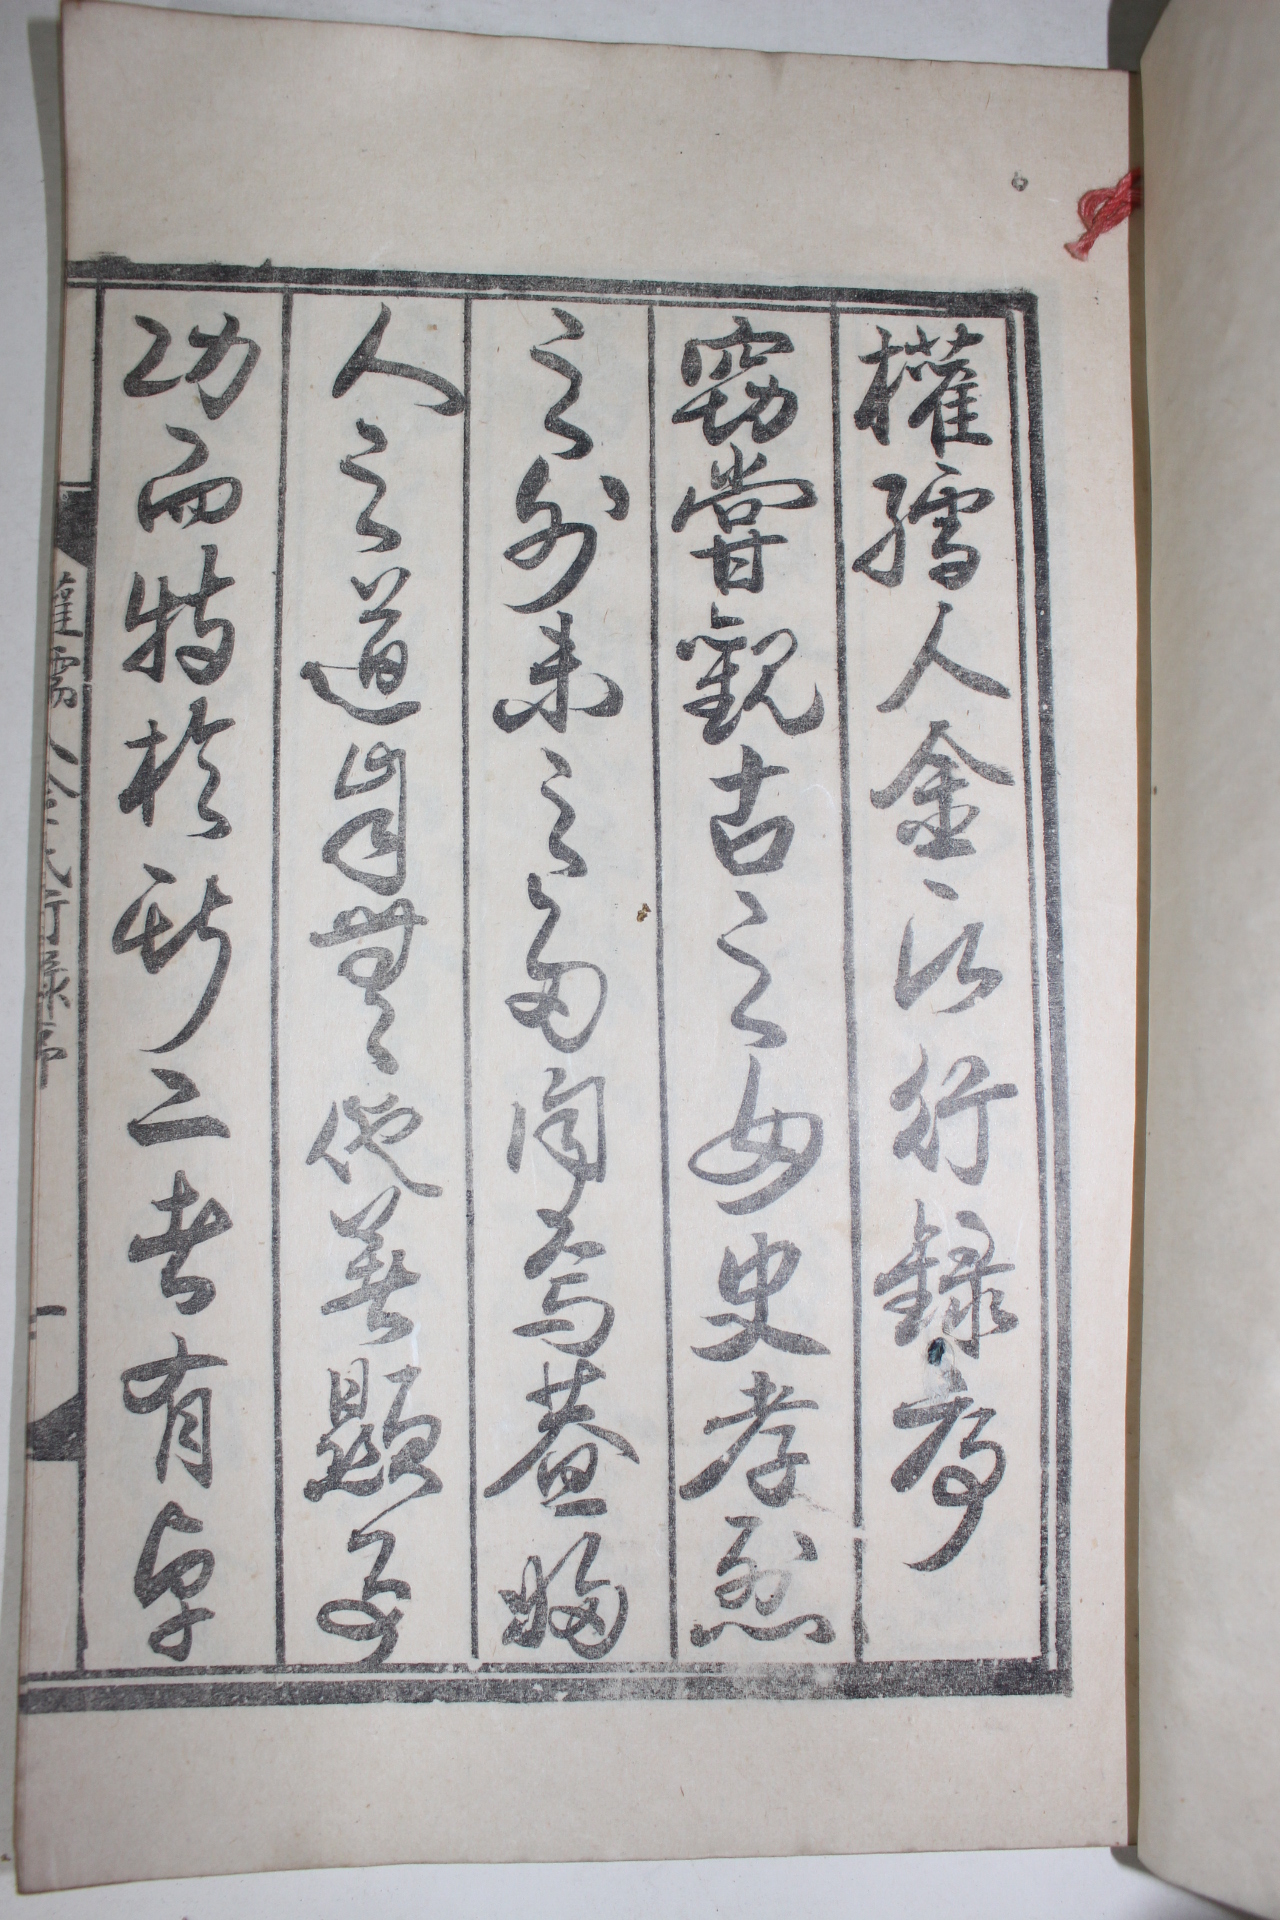 權孺人金氏行錄序
竊嘗觀古之女史孝烈
之外未之多聞焉蓋婦
人之道豈無他善顯
功而特於斯二者有卓
權孺人金氏行錄序 一